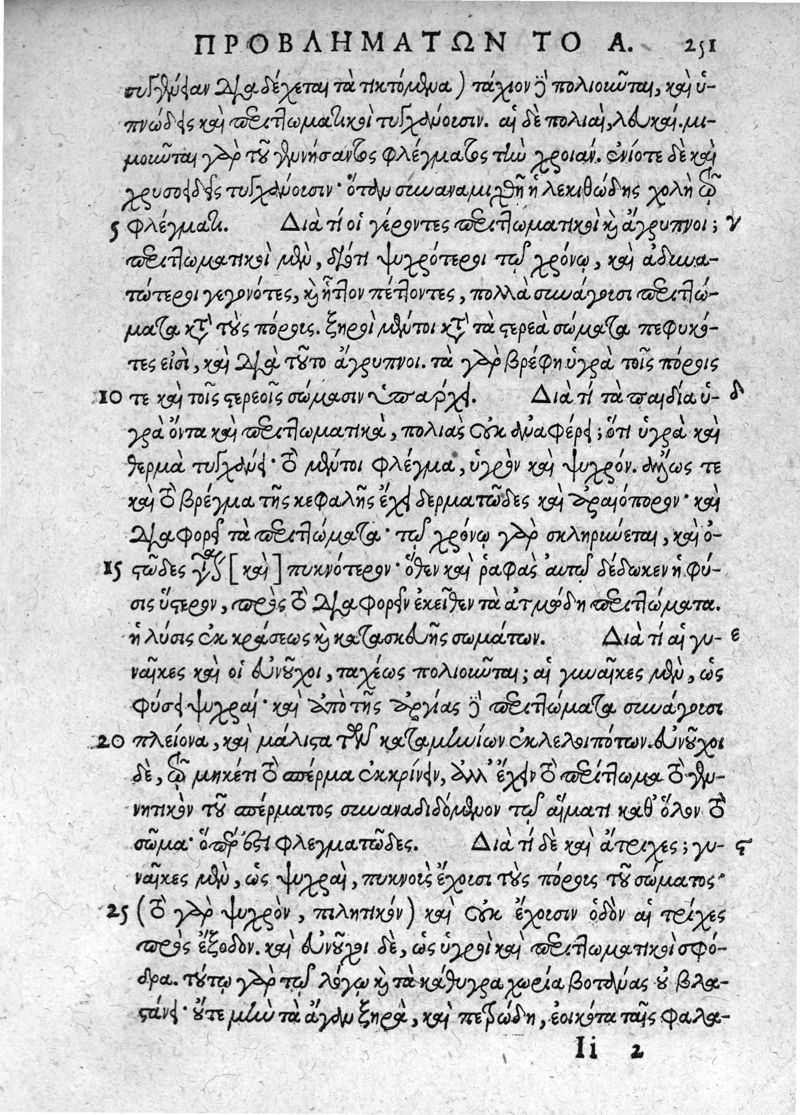 ΠΡΟΒΛΗΜΑΤΩΝ ΤΟ Α. 251
διαδέχεται τὰ τικτόμενα) τάχιον ἢ πολιοῦνται, καὶ ὑ-
πνώδεις καὶ περιττωματικοὶ τυγχάνουσιν. αἱ δὲ πολιαὶ, λευκαί. μι-
μοιῶται γὰρ τοῦ γεννήσαντος φλέγματος τὴν χροιάν. ἐνίοτε δὲ καὶ
χρυσοειδεῖς τυγχάνουσιν· ὅταν συναναμιχθῇ ἡ λεκιθώδης χολὴ τῷ
5 φλέγματι. Διὰ τί οἱ γέροντες περιττωματικοὶ καὶ ἄγρυπνοι; γ
περιττωματικοὶ μὲν, διότι ψυχρότεροι τῷ χρόνῳ, καὶ ἀδυνα-
τώτεροι γεγονότες, καὶ ἧττον πέττοντες, πολλὰ συνάγουσι περιττώ-
ματα κατὰ τοὺς πόρους. ξηροὶ μέντοι κατὰ τὰ στερεὰ σώματα πεφυκό-
τες εἰσὶ, καὶ διὰ τοῦτο ἄγρυπνοι. τὰ γὰρ βρέφη ὑγρὰ τοῖς πόροις
10 τε καὶ τοῖς στερεοῖς σώμασιν ὑπάρχει. Διὰ τί τὰ παιδία ὑ- δ
γρὰ ὄντα καὶ περιττωματικὰ, πολιὰς οὐκ ἀναφέρει; ὅτι ὑγρὰ καὶ
θερμὰ τυγχάνει· τὸ μέντοι φλέγμα, ὑγρὸν καὶ ψυχρόν. ἄλλως τε
καὶ τὸ βρέγμα τῆς κεφαλῆς ἔχει δερματῶδες καὶ ἀραιόπορον· καὶ
διαφορεῖ τὰ περιττώματα· τῷ χρόνῳ γὰρ σκληρύνεται, καὶ ὀ-
15 στῶδες γίνεται [καὶ] πυκνότερον· ὅθεν καὶ ῥαφὰς αὐτῷ δέδωκεν ἡ φύ-
σις ὕστερον, πρὸς τὸ διαφορεῖν ἐκεῖθεν τὰ ἀτμώδη περιττώματα.
ἡ λύσις ἐκ κράσεως καὶ κατασκευῆς σωμάτων. Διὰ τί αἱ γυ- ε
ναῖκες καὶ οἱ εὐνοῦχοι, ταχέως πολιοῦνται; αἱ γυναῖκες μὲν, ὡς
φύσει ψυχραί· καὶ ἀπὸ τῆς ἀργίας ἢ περιττώματα συνάγουσι
20 πλείονα, καὶ μάλιστα τῶν καταμηνίων ἐκλελοιπότων. εὐνοῦχοι
δὲ, τῷ μηκέτι τὸ σπέρμα ἐκκρίνειν, ἀλλ' ἔχειν τὸ περίττωμα τὸ γεν-
νητικὸν τοῦ σπέρματος συναναδιδόμενον τῷ αἵματι καθ' ὅλον τὸ
σῶμα· ὅπερ ἐστὶ φλεγματῶδες. Διὰ τί δὲ καὶ ἄτριχες; γυ- ϛ
ναῖκες μὲν, ὡς ψυχραὶ, πυκνοὺς ἔχουσι τοὺς πόρους τοῦ σώματος·
25 (τὸ γὰρ ψυχρὸν, πιλητικόν) καὶ οὐκ ἔχουσιν ὁδὸν αἱ τρίχες
πρὸς ἔξοδον. καὶ εὐνοῦχοι δὲ, ὡς ὑγροὶ καὶ περιττωματικοὶ σφό-
δρα. τούτῳ γὰρ τῷ λόγῳ καὶ τὰ κάθυγρα χωρία βοτάνας οὐ βλα-
στάνει· οὔτε μὴν τὰ ἄγαν ξηρὰ, καὶ πετρώδη, ἐοικότα ταῖς φαλα-
Ii 2